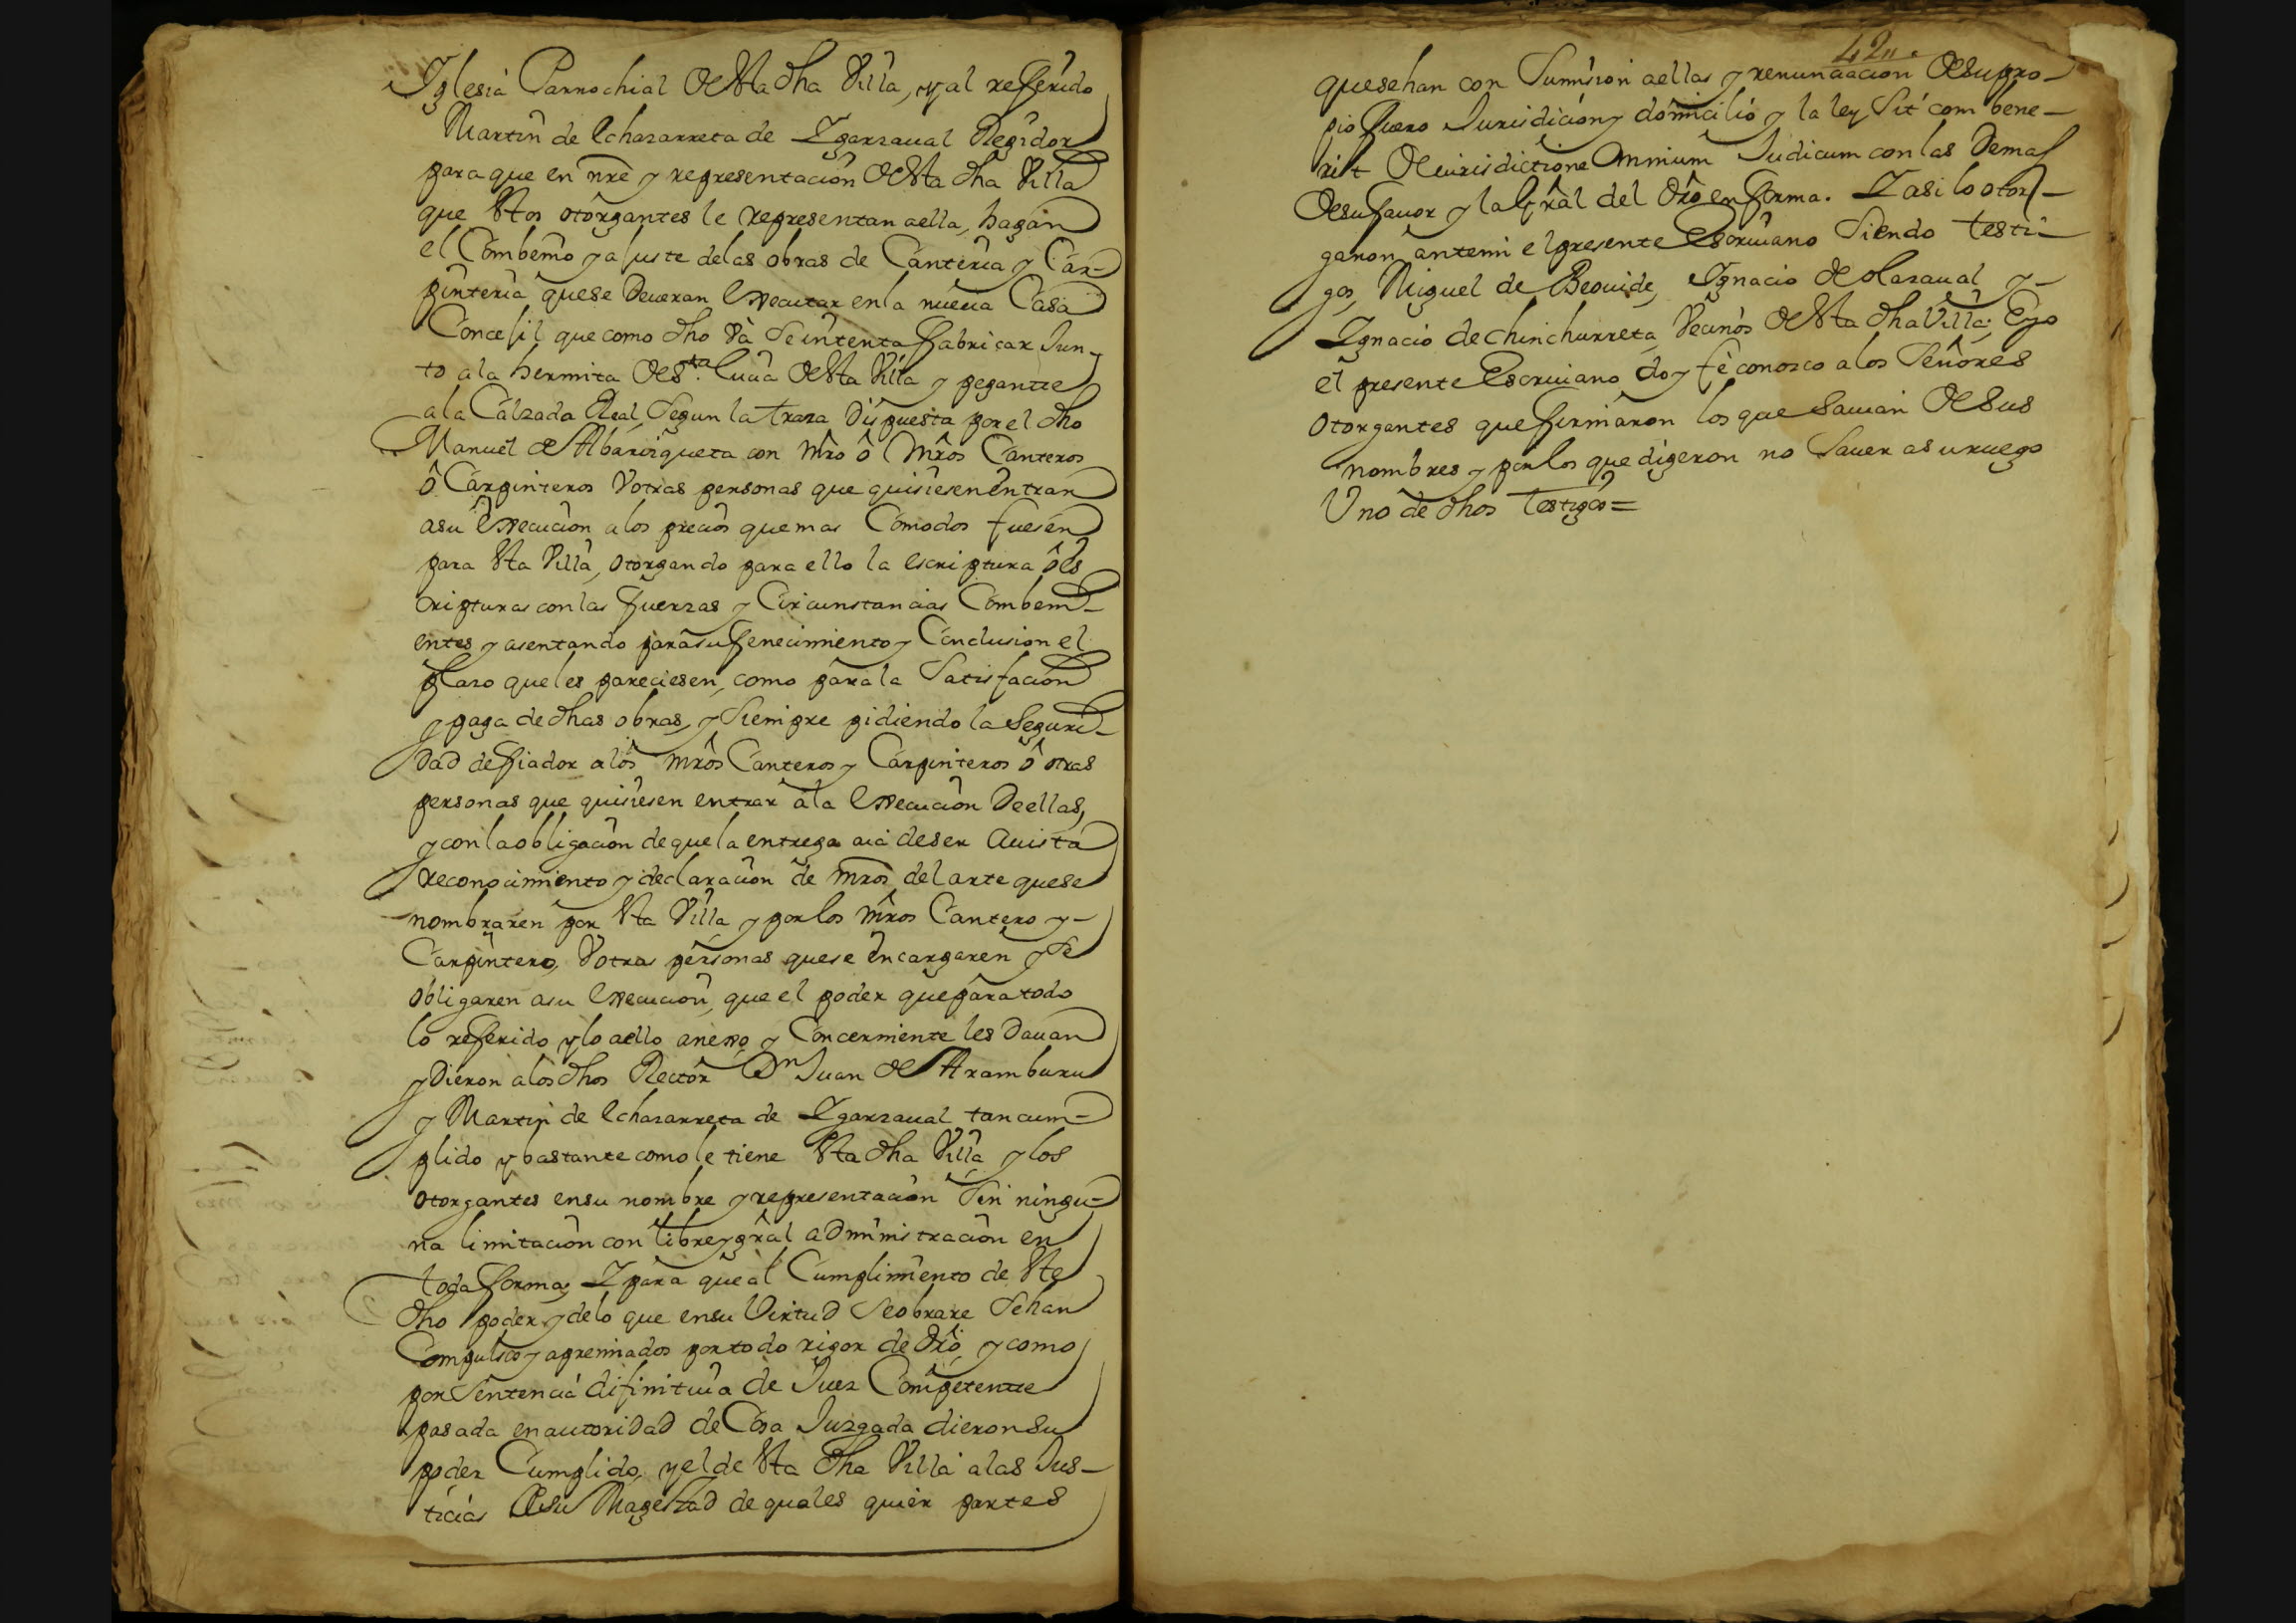 Iglesia Parrochial de Sta dha Villa, y al refferido
Martin de Echazarreta de Ygarzaual Regidor
para que en nre y representacion de Sta dha Villa
que Stos otorgantes le representan a ella, hagan
el Combenio y ajuste de las obras de Canteria y Car-
pinteria que se Deueran Executar en la nueua Casa
Concejil que como dho Va Se intenta ffabricar Jun-
to a la hermita de Sta. Lucia de Sta Villa y pegante
a la Calzada Real, Segun la traza Dispuesta por el dho
Manuel de Abarizqueta con Mro ô Mros Canteros
ô Carpinteros V otras personas que quisiesen Entrar
a su Execucion a los precios que mas Comodos fuesen
para Sta Villa, otorgando para ello la escriptura ô es
cripturas con las fuerzas y Circunstancias Combeni-
entes y asentando para su fenecimiento y Conclusion el
plazo que les pareciesen, como para la Satisfacion
y paga de dhas obras, y Siempre pidiendo la Seguri-
Dad de fiador a los mros Canteros y Carpinteros ô otras
personas que quisiesen entrar a la Execucion De ellas,
y con la obligacion de que la entrega aia de ser a uista
reconocimiento y declaracion de mros del arte que se
nombraren por Sta Villa y por los mros Cantero y-
Carpintero, V otras personas que se encargaren y Se
obligaren a su Execucion, que el poder que para todo
lo refferido y lo a ello anexo y Concerniente les Dauan
y Dieron a los dhos Rector Dn Juan de Aramburu
y Martin de Echazarreta de Ygarzaual tan cum-
plido y bastante como le tiene Sta dha Villa y los
otorgantes en su nombre y representacion Sin ningu-
na limitacion con libre y gral administracion en
toda fforma; Y para que al Cumplimiento de Ste
dho poder y de lo que en su Virtud Se obrare Sehan
Compulsos y apremiados por todo rigor de dro, y como
por Sentencia difinitiua de Juez Competente
pasada en autoridad de Cosa Juzgada dieron su
poder Cumplido, y el de Sta dha Villa a las Jus-
ticias de su Magestad de quales quier partes
42
que sehan con Sumision a ellas y renunciacion de su pro-
pio ffuero Jurisdicion y domicilio y la ley Sit combene-
rit de iurisdictione omnium Judicum con las Demas
de su fauor y la Gral del dro en fforma. Y asi lo otor-
garon ante mi el presente Escriuano Siendo testi-
gos, Miguel de Beouide, Ygnacio de olazaual y-
Ygnacio de chinchurreta, Vecinos de Sta dha Villa; E yo
el presente Escriuano doy fe conosco a los Señores
otorgantes que ffirmaron los que Sauian de sus
nombres y por los que digeron no Sauer a su ruego
Vno de dhos testigos=